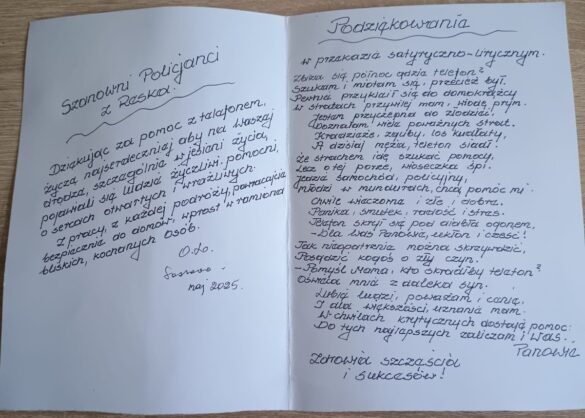 Szanowni Policjanci
z Reska.
Dziękując za pomoc z telefonem,
życzę najserdeczniej aby na Waszej
drodze, szczególnie w jesieni życia,
pojawiali się ludzie życzliwi pomocni,
o sercach otwartych i wrażliwych.
Z pracy, z każdej podróży, powracajcie
bezpiecznie do domów, wprost w ramiona
bliskich, kochanych osób.
maj 2025.
Podziękowania
w przekazie satyryczno-lirycznym.
Zbliża się północ gdzie telefon?
Szukam i miotam się, przecież był.
Pewnie przykleił się do domokrążcy
w stratach przywilej mam, wiodę prym.
Jestem przyczepna do złodziei,
Doznałam wiele poważnych strat.
Kradzieże, zguby, los kudłaty,
A dzisiaj męża, telefon siadł.
Ze strachem idę szukać pomocy,
Lecz o tej porze, wioseczka śpi.
Jedzie samochód, policyjny,
Młodzi w mundurach, chcą pomóc mi.
Chwile wieczorne i złe i dobre.
Panika, smutek, radość i stres.
Telefon skrył się pod diabła ogonem,
- Dla Was Panowie, ukłon i cześć!
Tak nieopatrznie można skrzywdzić,
Posądzić kogoś o zły czyn!
- Pomyśl Mama, kto skradłby telefon?
Oświeca mnie z daleka syn.
Lubię ludzi, poważam i cenię,
I dla większości, uznanie mam.
W chwilach krytycznych dostaję pomoc:
Do tych najlepszych zaliczam i Was..
Panowie
Zdrowia szczęścia
i sukcesów!